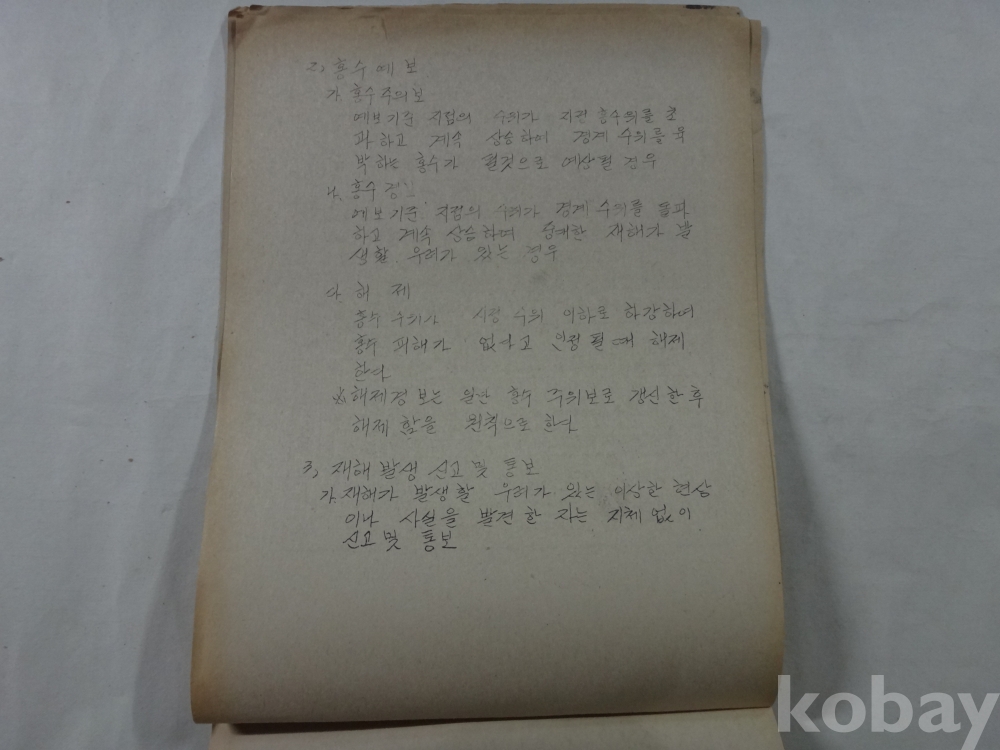 2) 홍수예보
가. 홍수주의보
예보기준 지점의 수위가 지정 홍수위를 초
과하고 계속 상승하여 경계수위를 육
박하는 홍수가 될것으로 예상될 경우
나. 홍수경보
예보기준 지점의 수위가 경계수위를 돌파
하고 계속 상승하여 중대한 재해가 발
생할 우려가 있는 경우
다. 해제
홍수 수위가 지정 수위 이하로 하강하여
홍수 피해가 없다고 인정될때 해제
한다
※해제경보는 일단 홍수 주의보로 갱신한후
해제함을 원칙으로 한다
3, 재해발생 신고 및 통보
가. 재해가 발생할 우려가 있는 이상한 현상
이나 사실을 발견한 자는 지체없이
신고 및 통보
kobay